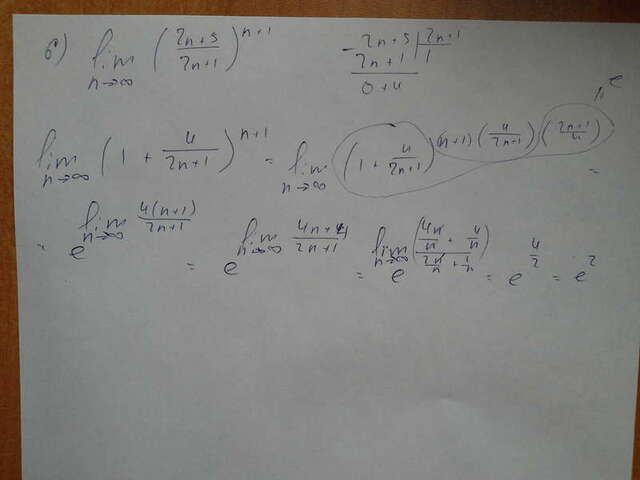 б) lim n→∞ ( 2n+5 / 2n+1 )^(n+1)
- 2n+5 | 2n+1
2n+1 | 1
0+4
lim n→∞ ( 1 + 4 / 2n+1 )^(n+1) = lim n→∞ ( 1 + 4 / 2n+1 )^((n+1) ( 4 / 2n+1 ) ( 2n+1 / 4 )) =
" e
= e^(lim n→∞ 4(n+1) / 2n+1) = e^(lim n→∞ 4n+4 / 2n+1) = e^(lim n→∞ ( 4n/n + 4/n ) / 2n/n + 1/n) = e^(4/2) = e^2